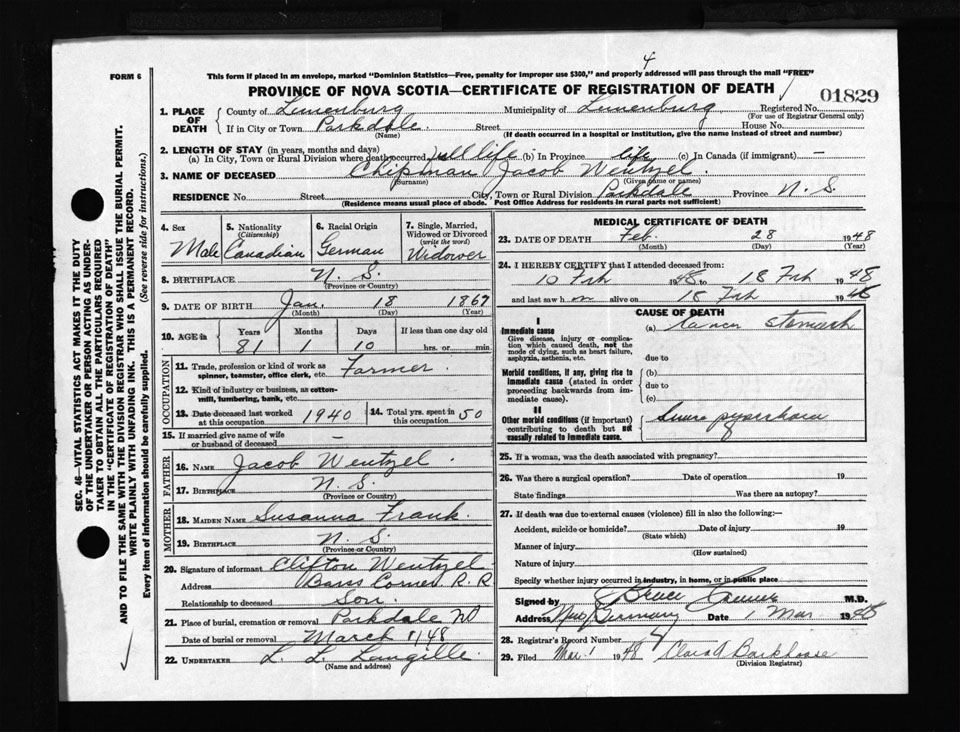 4
FORM 6
This form if placed in an envelope, marked "Dominion Statistics—Free, penalty for improper use $300," and properly addressed will pass through the mail "FREE"
PROVINCE OF NOVA SCOTIA—CERTIFICATE OF REGISTRATION OF DEATH
01829
1. PLACE OF DEATH
County of Lunenburg Municipality of Lunenburg Registered No.
(For use of Registrar General only)
If in City or Town Parkdale. Street House No.
(Name) (If death occurred in a hospital or institution, give the name instead of street and number)
2. LENGTH OF STAY (in years, months and days)
(a) In City, Town or Rural Division where death occurred full life (b) In Province life (c) In Canada (if immigrant) —
3. NAME OF DECEASED Chipman Jacob Wentzel.
(Surname) (Given name or names)
RESIDENCE No. Street City, Town or Rural Division Parkdale Province N. S.
(Residence means usual place of abode. Post Office Address for residents in rural parts not sufficient)
4. Sex Male
5. Nationality (Citizenship) Canadian
6. Racial Origin German
7. Single, Married, Widowed or Divorced (write the word) Widower
8. BIRTHPLACE N. S.
(Province or Country)
9. DATE OF BIRTH Jan. 18 1867
(Month) (Day) (Year)
10. AGE in Years 81 Months 1 Days 10 If less than one day old hrs. or min.
OCCUPATION
11. Trade, profession or kind of work as spinner, teamster, office clerk, etc. Farmer.
12. Kind of industry or business, as cotton-mill, lumbering, bank, etc.
13. Date deceased last worked at this occupation 1940 14. Total yrs. spent in this occupation 50
15. If married give name of wife or husband of deceased —
FATHER
16. NAME Jacob Wentzel.
17. BIRTHPLACE N. S.
(Province or Country)
MOTHER
18. MAIDEN NAME Susanna Frank.
19. BIRTHPLACE N. S.
(Province or Country)
20. Signature of informant Clifton Wentzel
Address Barss Corner R. R
Relationship to deceased Son.
21. Place of burial, cremation or removal Parkdale
Date of burial or removal March 1/48
22. UNDERTAKER L. L. Langille.
(Name and address)
MEDICAL CERTIFICATE OF DEATH
23. DATE OF DEATH Feb. 28 1948
(Month) (Day)
24. I HEREBY CERTIFY that I attended deceased from:
10 Feb 1948 to 18 Feb 1948
and last saw h im alive on 18 Feb 1948
CAUSE OF DEATH
I
Immediate cause
Give disease, injury or complication which caused death, not the mode of dying, such as heart failure, asphyxia, asthenia, etc.
(a) cancer stomach
due to
Morbid conditions, if any, giving rise to immediate cause (stated in order proceeding backwards from immediate cause).
(b)
due to
(c)
II
Other morbid conditions (if important) contributing to death but not causally related to immediate cause.
pyorrhoea
25. If a woman, was the death associated with pregnancy?
26. Was there a surgical operation? Date of operation 19
State findings Was there an autopsy?
27. If death was due to external causes (violence) fill in also the following:—
Accident, suicide or homicide? Date of injury 19
(State which)
Manner of injury
(How sustained)
Nature of injury
Specify whether injury occurred in industry, in home, or in public place
Signed by Bruce M.D.
Address New Germany Date 1 Mar 1948
28. Registrar's Record Number
29. Filed Mar. 1 1948 Clara A Barkhouse
(Division Registrar)
SEC. 46—VITAL STATISTICS ACT MAKES IT THE DUTY
OF THE UNDERTAKER OR PERSON ACTING AS UNDER-
TAKER TO OBTAIN ALL THE PARTICULARS REQUIRED
IN THE "CERTIFICATE OF REGISTRATION OF DEATH"
AND TO FILE THE SAME WITH THE DIVISION REGISTRAR WHO SHALL ISSUE THE BURIAL PERMIT.
WRITE PLAINLY WITH UNFADING INK. THIS IS A PERMANENT RECORD.
Every item of information should be carefully supplied. (See reverse side for instructions.)